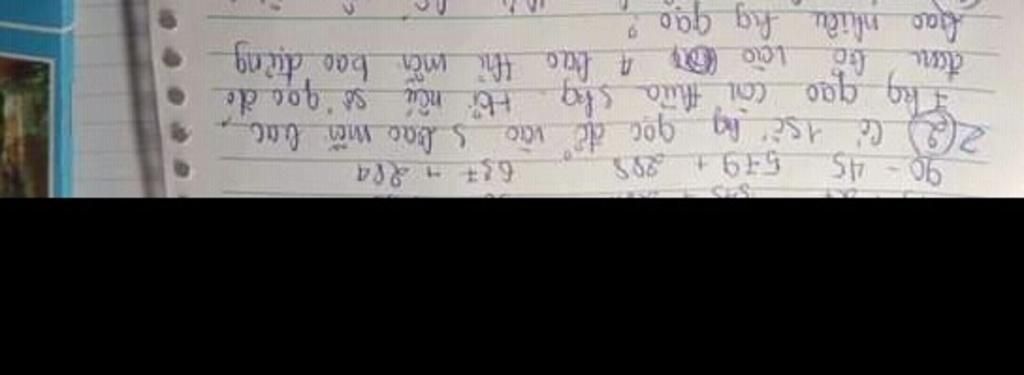 90 - 45 579 + 288 687 + 281
2 Có 1 số kg gạo đổ vào 5 bao mỗi bao
7 kg gạo còn thừa 5kg. Hỏi nếu số gạo đó
đem bỏ vào 4 bao thì mỗi bao đựng
bao nhiêu kg gạo ?